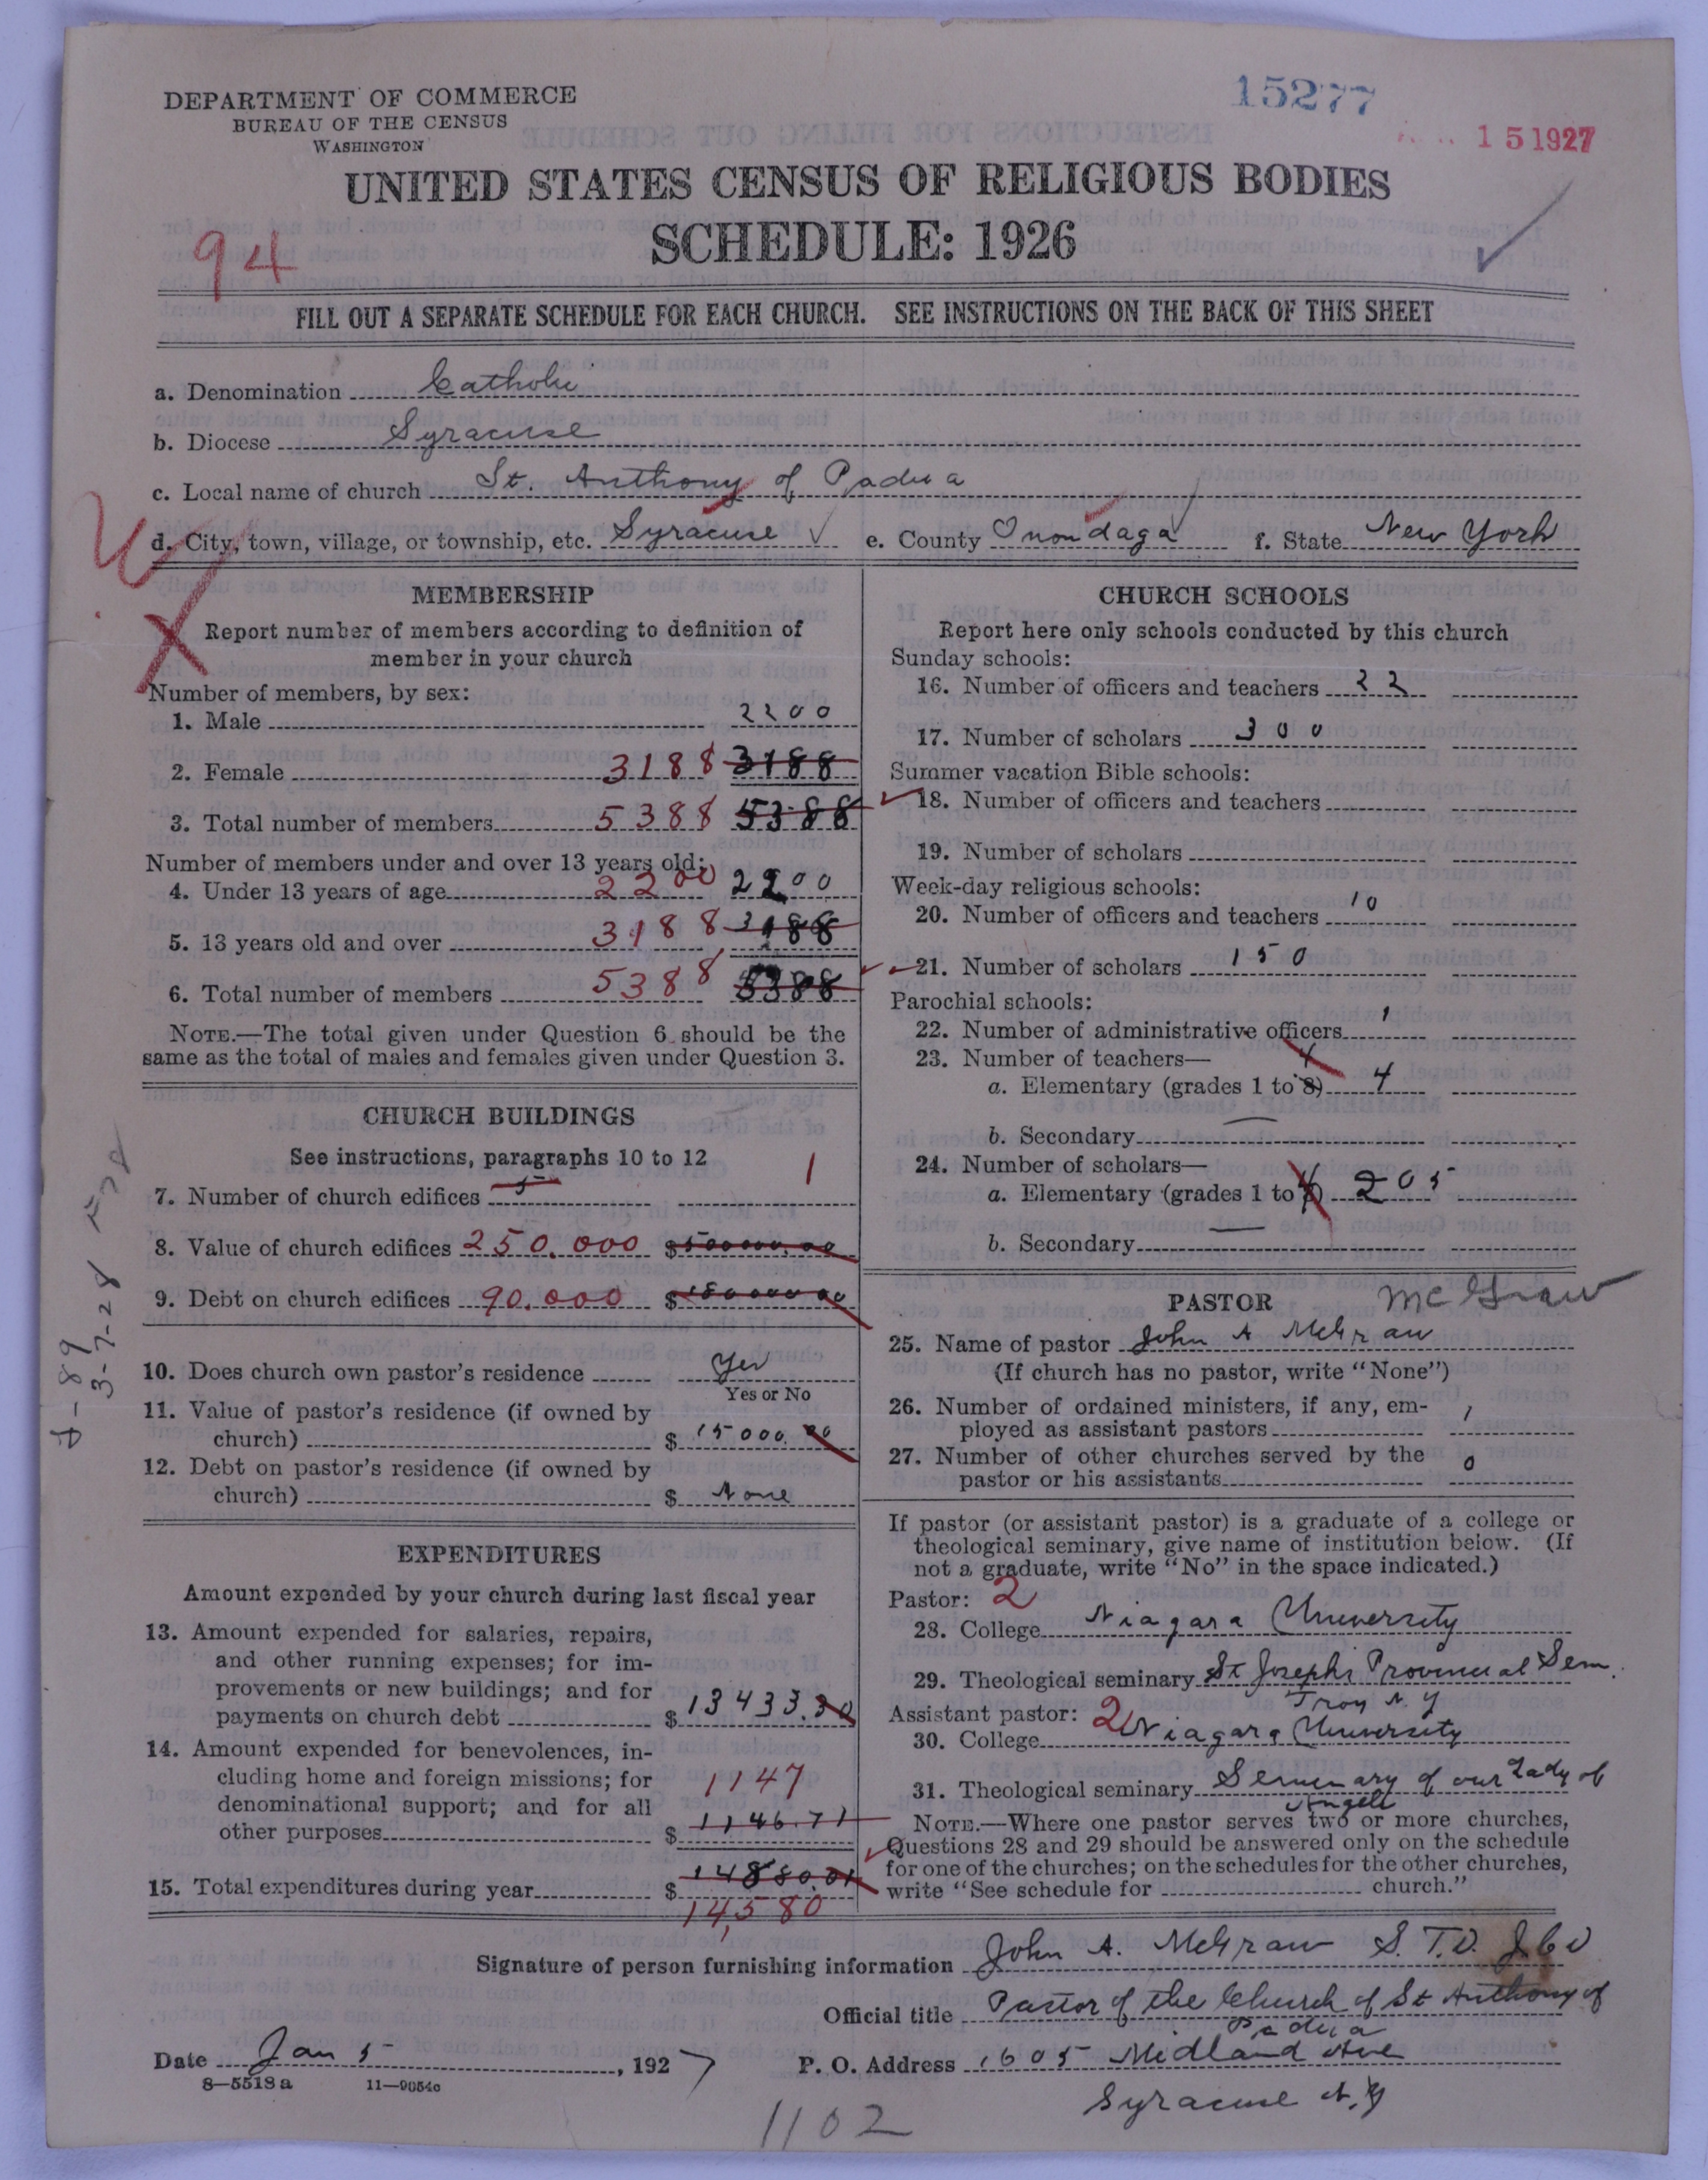 DEPARTMENT OF COMMERCE
BUREAU OF THE CENSUS
WASHINGTON
15277
15 1927
UNITED STATES CENSUS OF RELIGIOUS BODIES
SCHEDULE: 1926
94
FILL OUT A SEPARATE SCHEDULE FOR EACH CHURCH. SEE INSTRUCTIONS ON THE BACK OF THIS SHEET
a. Denomination Catholic
b. Diocese Syracuse
c. Local name of church St. Anthony of Padua
d. City, town, village, or township, etc. Syracuse e. County Onondaga f. State New York
MEMBERSHIP
Report number of members according to definition of
member in your church
Number of members, by sex:
1. Male 2200
2. Female 3188 3188
3. Total number of members 5388 5388
Number of members under and over 13 years old:
4. Under 13 years of age 2200 2200
5. 13 years old and over 3188 3188
6. Total number of members 5388 5388
NOTE.—The total given under Question 6 should be the
same as the total of males and females given under Question 3.
CHURCH BUILDINGS
See instructions, paragraphs 10 to 12
7. Number of church edifices 5 1
8. Value of church edifices 250.000 $500000.00
9. Debt on church edifices 90.000 $180000.00
10. Does church own pastor's residence Yes
Yes or No
11. Value of pastor's residence (if owned by
church) $ 15000.00
12. Debt on pastor's residence (if owned by
church) $ None
J-89
3-7-28
EXPENDITURES
Amount expended by your church during last fiscal year
13. Amount expended for salaries, repairs,
and other running expenses; for im-
provements or new buildings; and for
payments on church debt $ 13433.30
14. Amount expended for benevolences, in-
cluding home and foreign missions; for
denominational support; and for all 1147
other purposes $ 1146.71
15. Total expenditures during year $ 14880.01
14,580
CHURCH SCHOOLS
Report here only schools conducted by this church
Sunday schools:
16. Number of officers and teachers 22
17. Number of scholars 300
Summer vacation Bible schools:
18. Number of officers and teachers
19. Number of scholars
Week-day religious schools:
20. Number of officers and teachers 10
21. Number of scholars 150
Parochial schools:
22. Number of administrative officers 1
23. Number of teachers—
a. Elementary (grades 1 to 8) 4 4
b. Secondary —
24. Number of scholars—
a. Elementary (grades 1 to 4) 205
b. Secondary —
PASTOR McGraw
25. Name of pastor John A McGraw
(If church has no pastor, write "None")
26. Number of ordained ministers, if any, em-
ployed as assistant pastors 1
27. Number of other churches served by the
pastor or his assistants 0
If pastor (or assistant pastor) is a graduate of a college or
theological seminary, give name of institution below. (If
not a graduate, write "No" in the space indicated.)
Pastor: 2
28. College Niagara University
29. Theological seminary St Josephs Provincial Sem.
Troy N.Y
Assistant pastor: 2
30. College Niagara University
31. Theological seminary Seminary of our Lady of
Angels
NOTE.—Where one pastor serves two or more churches,
Questions 28 and 29 should be answered only on the schedule
for one of the churches; on the schedules for the other churches,
write "See schedule for church."
Signature of person furnishing information John A. McGraw S.T.D. J.C.D
Official title Pastor of the Church of St Anthony of
Padua
Date Jan 5, 1927 P. O. Address 1605 Midland Ave
Syracuse N.Y
8—5513a 11—9054c
1102